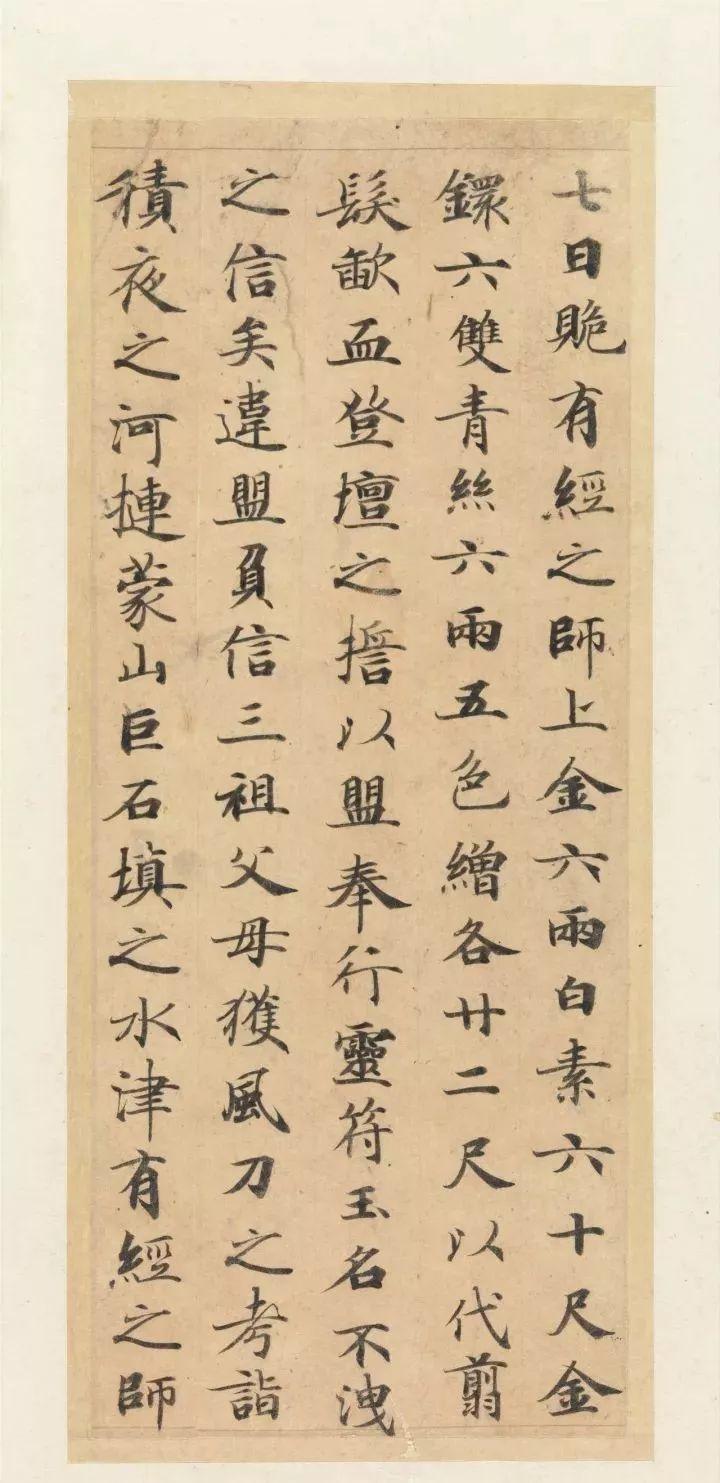 七日賹有經之師上金六兩白素六十尺金
鐶六雙青絲六兩五色繒各廿二尺以代翦
髮歃血登壇之擔以盟奉行靈符玉名不洩
之信矣違盟負信三祖父母獲風刀之考詣
積夜之河摙蒙山巨石填之水津有經之師